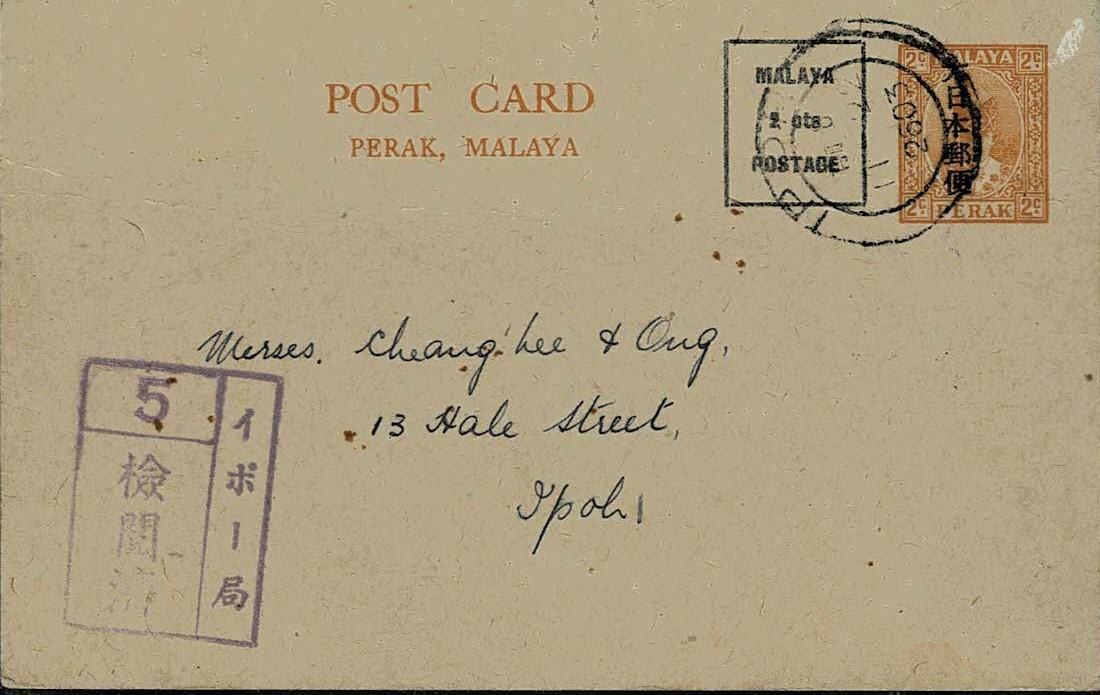 POST CARD
PERAK, MALAYA
MALAYA
2 cts
POSTAGE
2603
MALAYA
2C. 2C.
大日本郵便
2C. PERAK 2C.
Messes. Cheang Lee & Ong,
13 Hale Street,
Ipoh
5
検閲済
イポー局